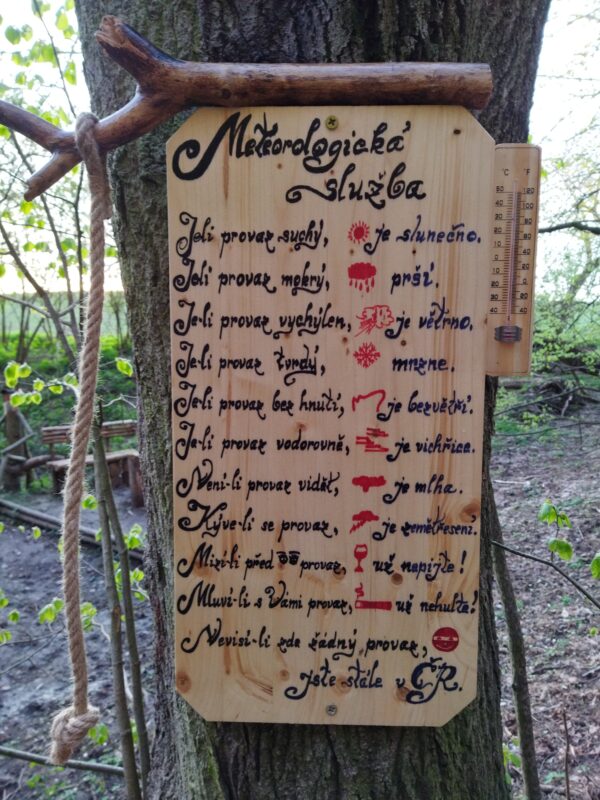 Meteorologická
služba
Je-li provaz suchý, je slunečno.
Je-li provaz mokrý, prší.
Je-li provaz vychýlen, je větrno.
Je-li provaz tvrdý, mrzne.
Je-li provaz bez hnutí, je bezvětří.
Je-li provaz vodorovně, je vichřice.
Není-li provaz vidět, je mlha.
Kýve-li se provaz, je zemětřesení.
Mizí-li před provaz, už nepijte!
Mluví-li s Vámi provaz, už nehulte!
Nevisí-li zde žádný provaz,
jste stále v ČR.
°C °F
50 120
40 100
30 80
20 60
10 40
0 20
10 0
20 20
30 40
40